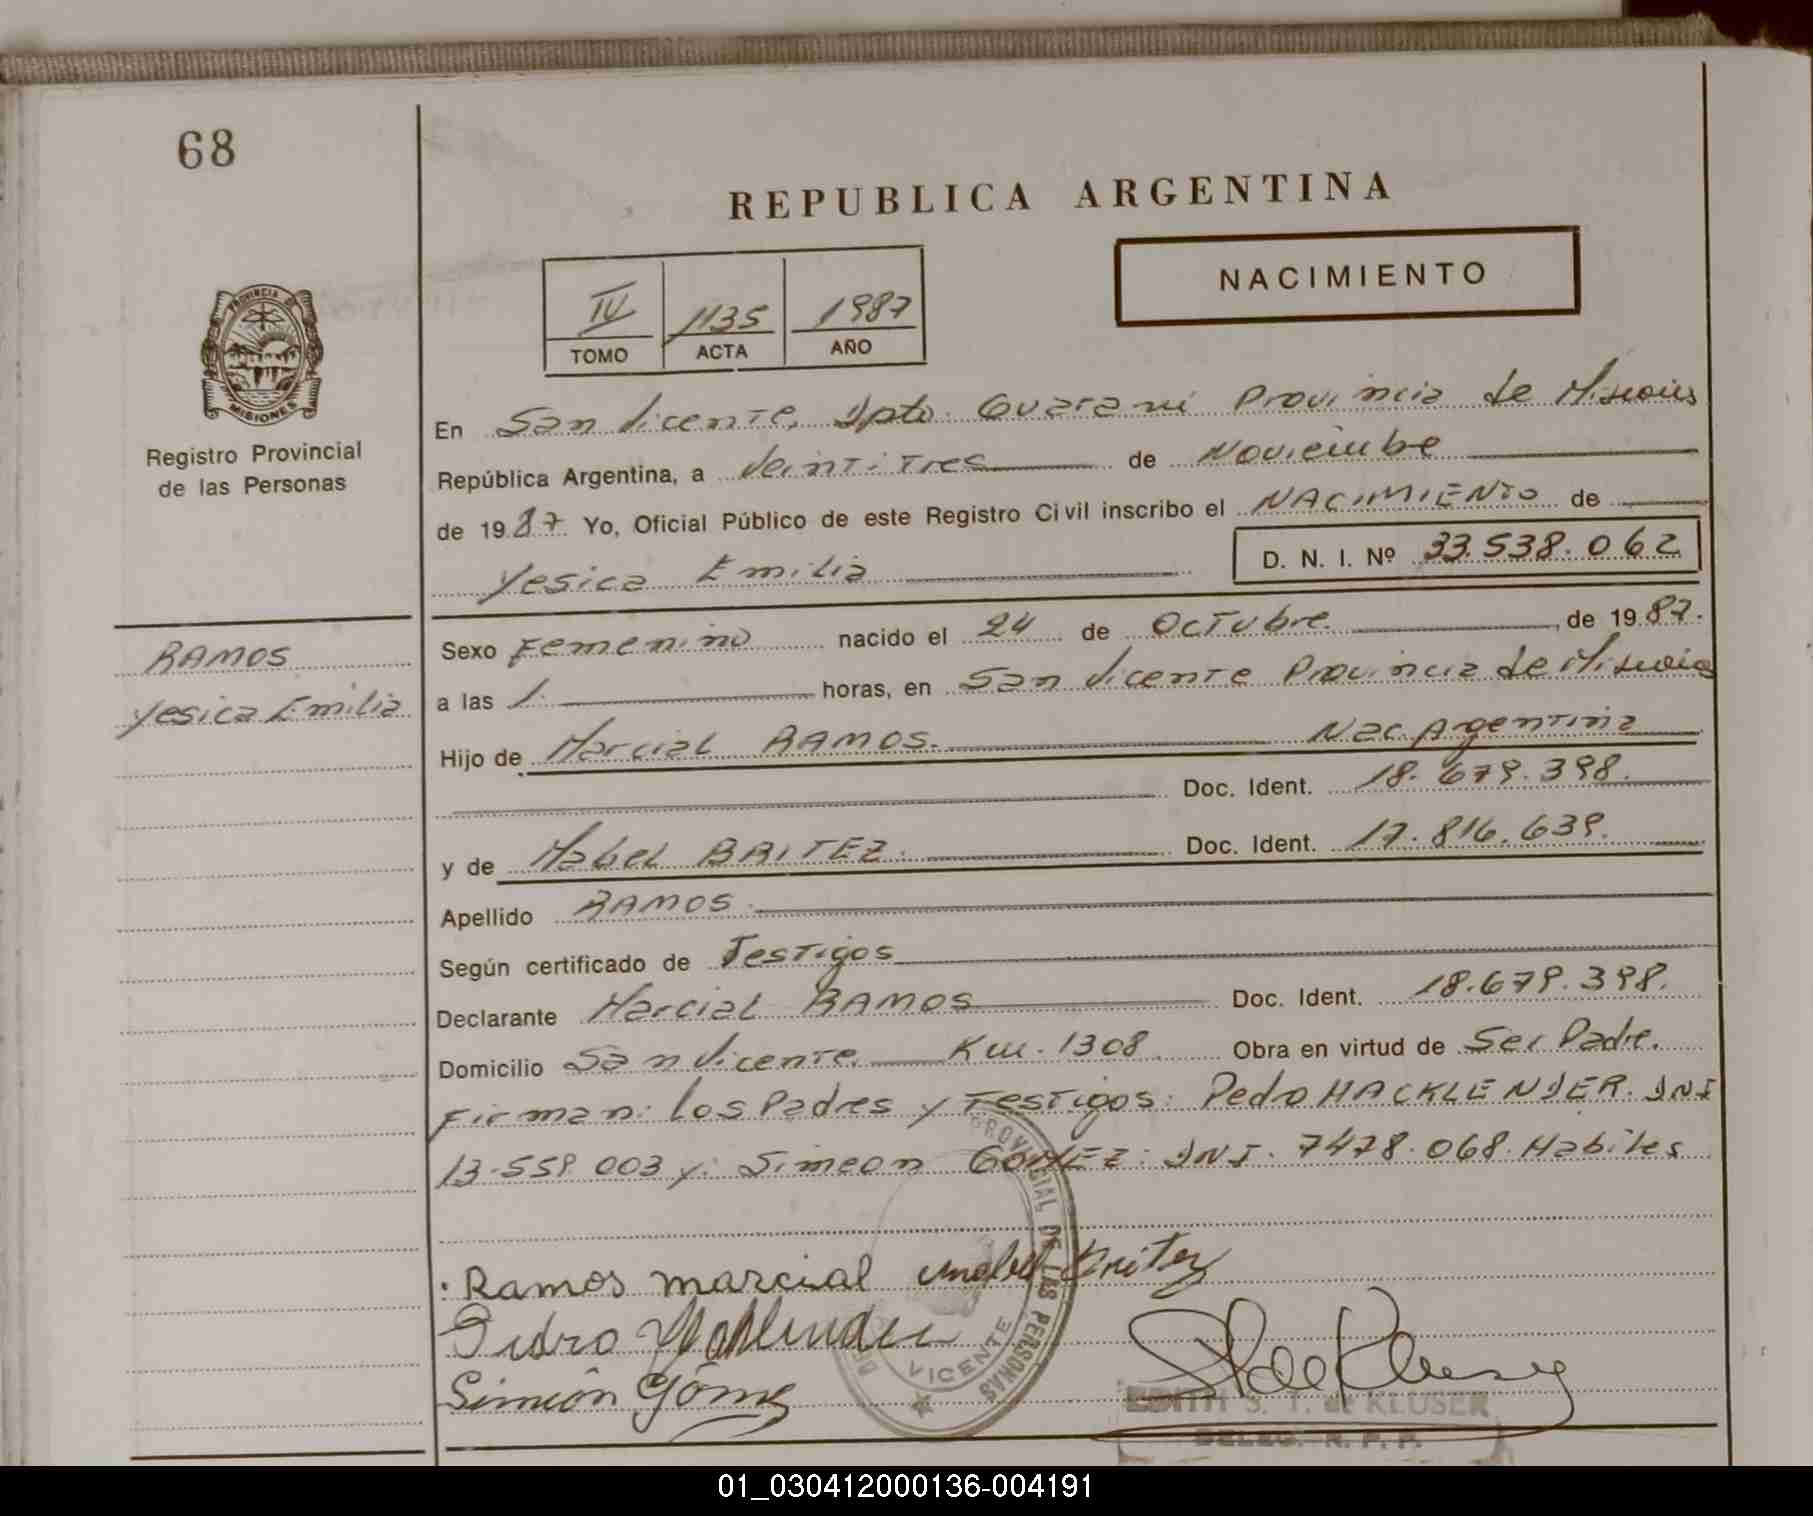 68
REPUBLICA ARGENTINA
NACIMIENTO
IV 1135 1987
TOMO ACTA AÑO
PROVINCIA DE
MISIONES
Registro Provincial
de las Personas
En San Vicente, Dpto. Guarani Provincia de Misiones
República Argentina, a Veintitres de Noviembe
de 1987 Yo, Oficial Público de este Registro Civil inscribo el NACIMIENTO de
Yesica Emilia
D. N. I. Nº 33.538.062
RAMOS
Yesica Emilia
Sexo Femenino nacido el 24 de Octubre de 1987.
a las 1. horas, en San Vicente Provincia de Misiones
Hijo de Marcial RAMOS. Nac Argentina
Doc. Ident. 18.679.398.
y de Mabel BRITEZ. Doc. Ident. 17.816.639.
Apellido RAMOS
Según certificado de Testigos
Declarante Marcial RAMOS Doc. Ident. 18.679.398.
Domicilio San Vicente. Km. 1308 Obra en virtud de Ser Padre.
Firman: los Padres y Testigos: Pedro HACKLENDER. DNI
13.559.003 y: Simeon GOMEZ: DNI. 7478.068. Habiles
PROVINCIAL DE LAS PERSONAS
VICENTE
Ramos marcial mabel Britez
Pedro
Simeón Gómez
EDITH S. T. de KLUSER
DELEG. R. P. P.
01_030412000136-004191